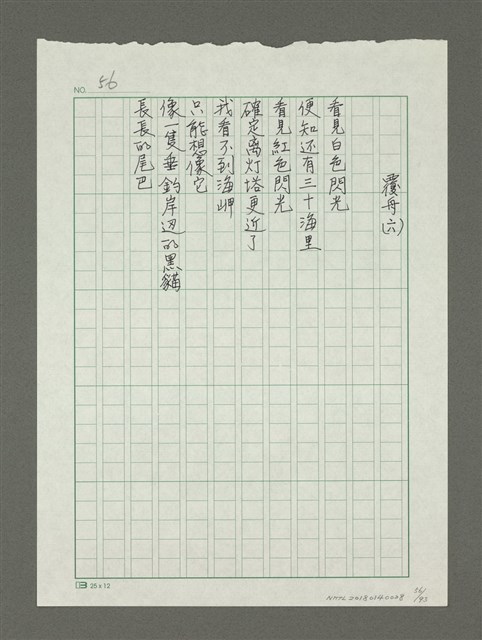 NO. 56
覆舟(六)
看見白色閃光
便知还有三十海里
看見紅色閃光
確定离灯塔更近了
我看不到海岬
只能想像它
像一隻垂釣岸边的黑貓
長長的尾巴
25 x 12